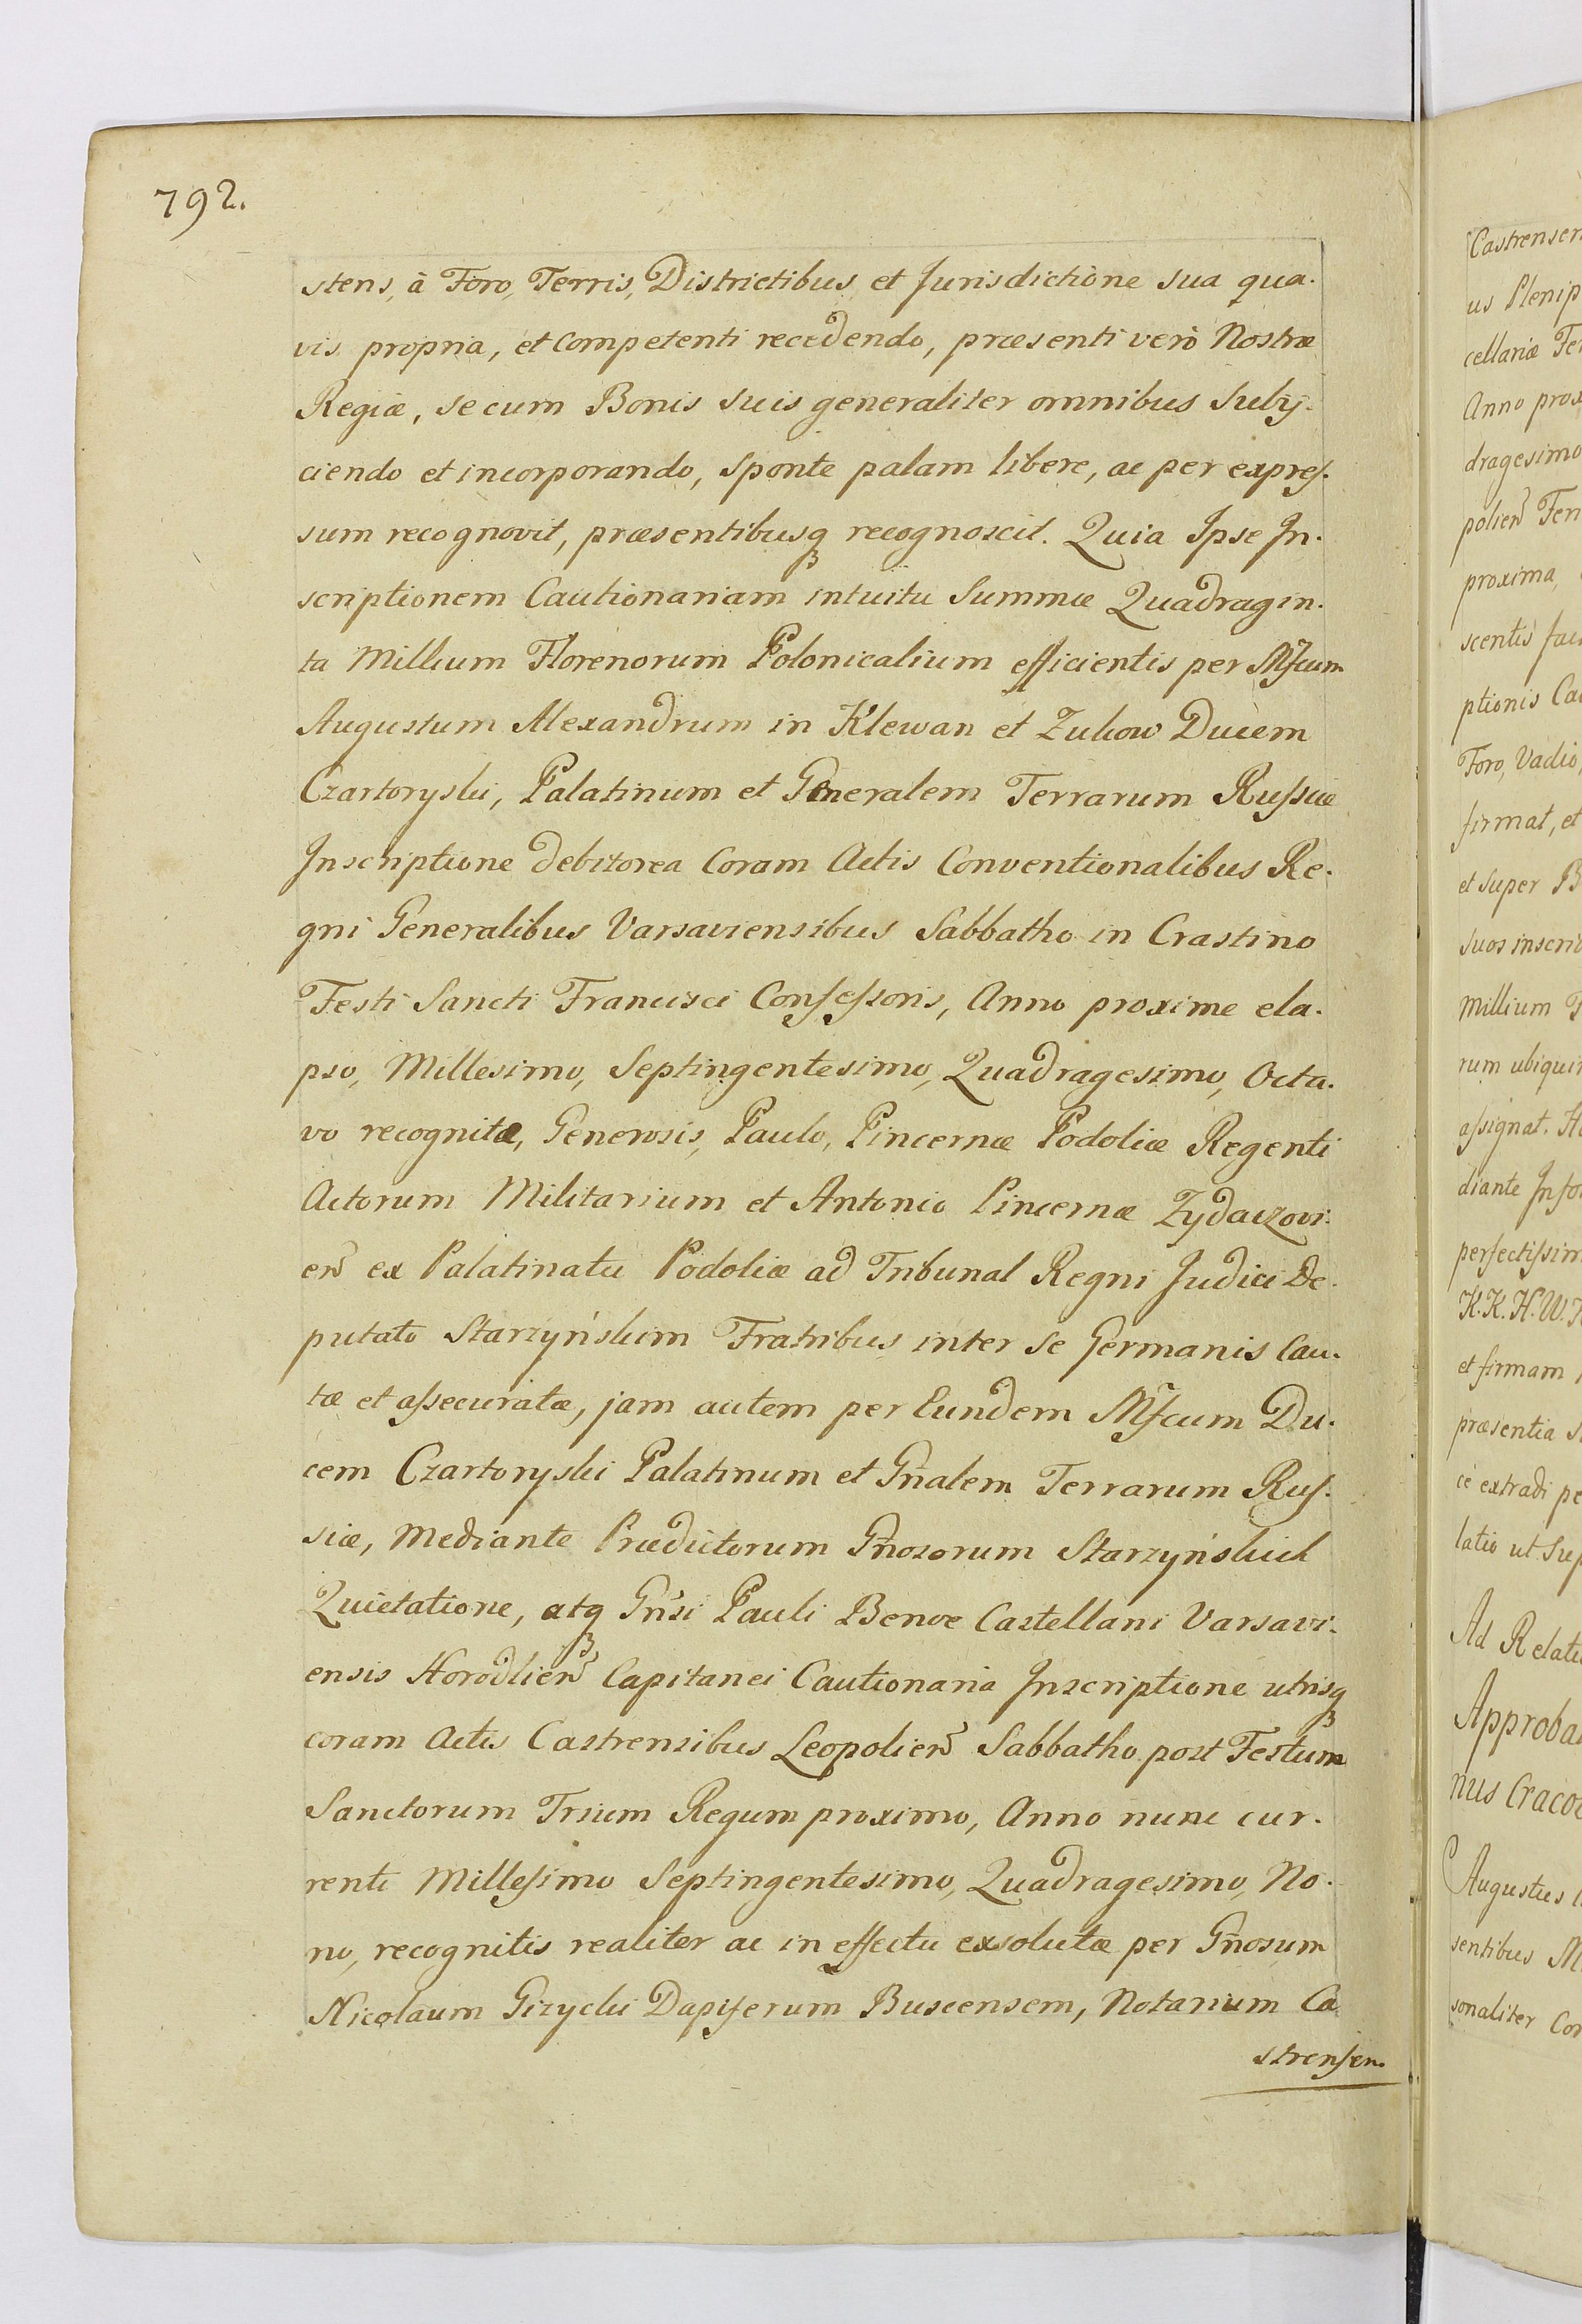 792.
stens, à Foro, Terris, Districtibus et Jurisdictione sua qua-
vis propria, et competenti recedendo, præsenti verò Nostræ
Regiæ, se cum Bonis suis generaliter omnibus subij-
ciendo et incorporando, sponte palam libere, ac per expres-
sum recognovit, præsentibusq recognoscit. Quia Ipse In-
scriptionem Cautionariam intuitu Summæ Quadragin-
ta Millium Florenorum Polonicalium efficientis per Mfcum
Augustum Alexandrum in Klewan et Zukow Ducem
Czartoryski, Palatinum et Generalem Terrarum Russiæ
Inscriptione debitorea Coram Actis Conventionalibus Re-
gni Generalibus Varsaviensibus Sabbatho in Crastino
Festi Sancti Francisci Confessoris, Anno proxime ela-
pso, Millesimo, Septingentesimo, Quadragesimo, Octa-
vo recognitæ, Generosis, Paulo, Pincernæ Podoliæ Regenti
Actorum Militarium et Antonio Pincernæ Zydaczovi-
eñ ex Palatinatu Podoliæ ad Tribunal Regni Judici De-
putato Starzyńskim Fratribus inter se Germanis Cau-
tæ et assecuratæ, jam autem per Eundem Mfcum Du-
cem Czartoryski Palatinum et Gñalem Terrarum Rus-
siæ, Mediante Prædictorum Gñosorum Starzyńskich
Quietatione, atq Gñsi Pauli Benoe Castellani Varsavi-
ensis Horodlieñ Capitanei Cautionaria Inscriptione utrisq
coram Actis Castrensibus Leopolieñ Sabbatho post Festum
Sanctorum Trium Regum proximo, Anno nunc cur-
renti Millesimo Septingentesimo, Quadragesimo, No-
no, recognitis realiter ac in effectu exsolutæ per Gñosum
Nicolaum Gizycki Dapiferum Buscensem, Notarium Ca-
strensem
Castrensem
us Plenip
cellariæ Ter
Anno prox
dragesimo
polieñ Fer
proxima,
scentis
ptionis Cau
Foro, Vadio,
firmat, et
et super B
suos inscrib
Millium
rum ubiqui
assignat.
diante Info
perfectissim
K.K.H.W.
et firmam
præsentia
ce extradi pe
latio ut Sup
Ad Relati
Approba
nus Craco
Augustus
sentibus
sonaliter Co